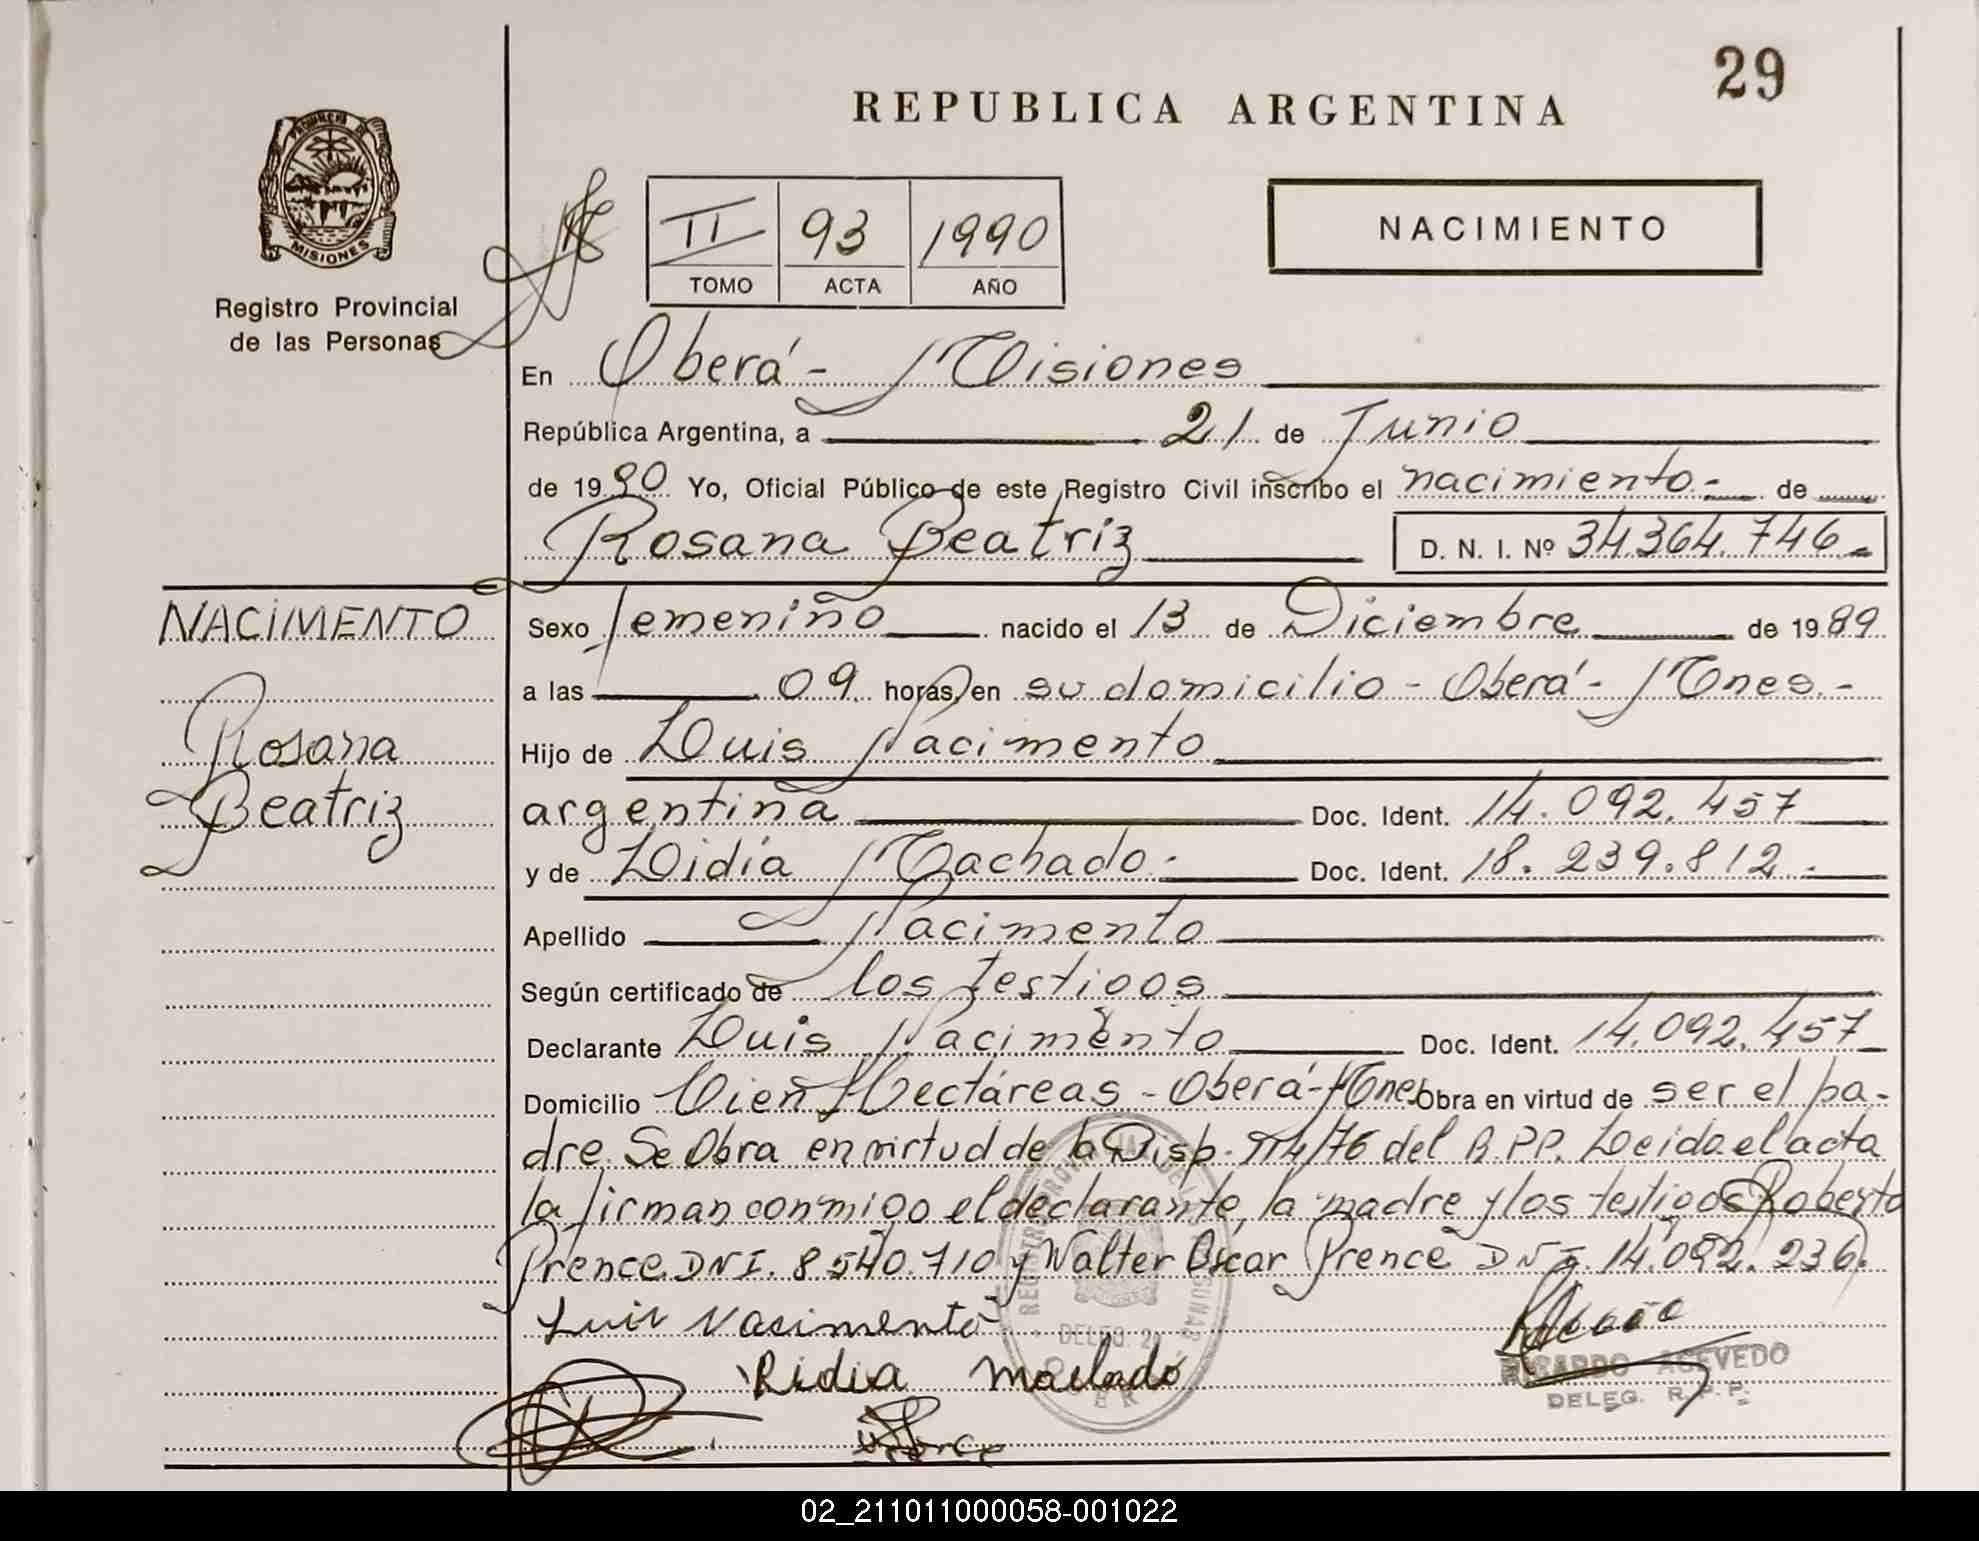 29
REPUBLICA ARGENTINA
PROVINCIA DE
MISIONES
Registro Provincial
de las Personas
II 93 1990
TOMO ACTA AÑO
NACIMIENTO
En Oberá - Misiones
República Argentina, a 21 de Junio
de 1990 Yo, Oficial Público de este Registro Civil inscribo el nacimiento.- de
Rosana Beatriz D. N. I. Nº 34.364.746.-
NACIMENTO
Rosana
Beatriz
Sexo femenino nacido el 13 de Diciembre de 1989
a las 09 horas, en su domicilio - Oberá - Mnes.-
Hijo de Luis Nacimento
argentina Doc. Ident. 14.092.457
y de Lidia Machado.- Doc. Ident. 18.239.812.-
Apellido Nacimento
Según certificado de los testigos
Declarante Luis Nacimento Doc. Ident. 14.092.457
Domicilio Cien Hectáreas - Oberá - Mnes Obra en virtud de ser el pa-
dre. Se Obra en virtud de la Disp. /76 del R.P.P. Leida el acta
la firman conmigo el declarante, la madre y los testigos Roberto
Prence DNI. 8.540.710 y Walter Oscar Prence DNI. 14.092.236.
Luis Nacimento
Lidia Machado
DELEG. 2
RICARDO ACEVEDO
DELEG. R. P. P.
02_211011000058-001022